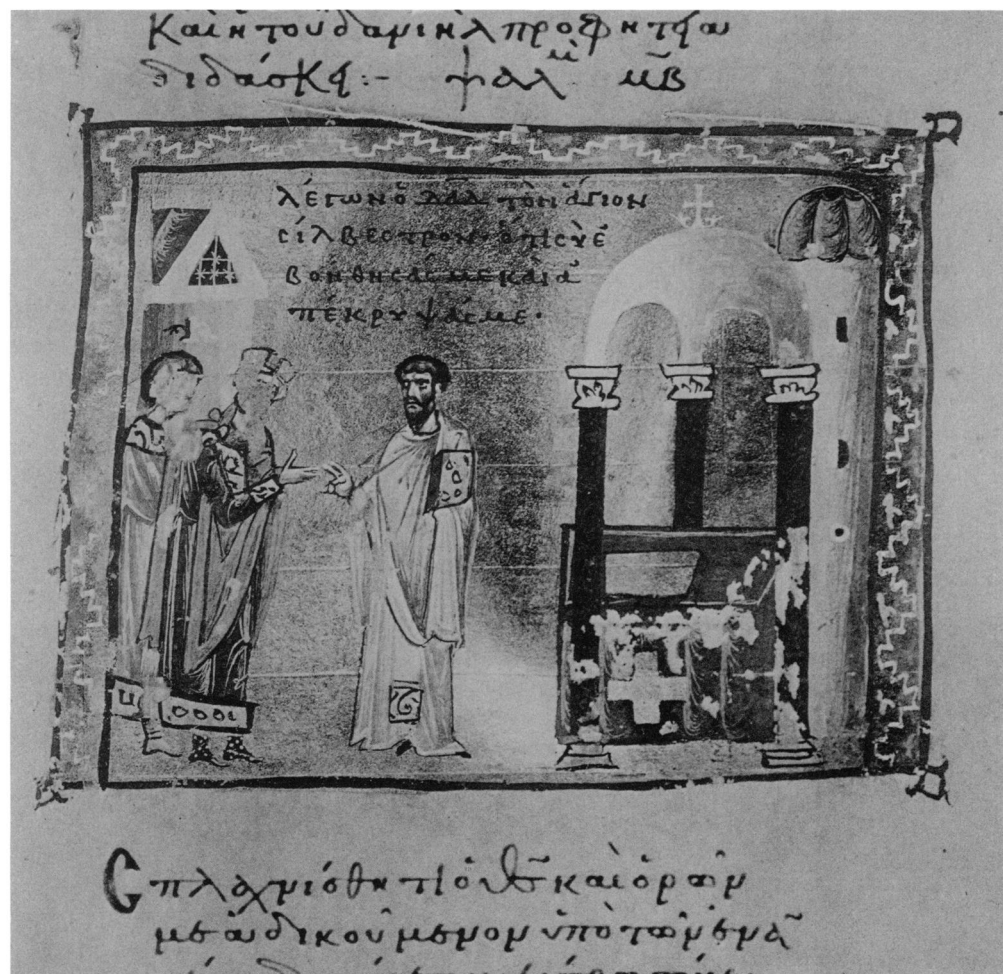 Καὶ ἡ τοῦ δανιὴλ προφητεία
διδάσκει:- ψαλμ μβ
λέγων ὁ δᾱδ τὸν ἅγιον
σίλβεστρον· ὅτι σὺ ἐ
βοήθησάς με καὶ ἀ
πέκρυψάς με·
Σπλαχνίσθητι ὁ θς̄ καὶ ὁρῶν
με ἀδικούμενον ὑπὸ τῶν ἐνα